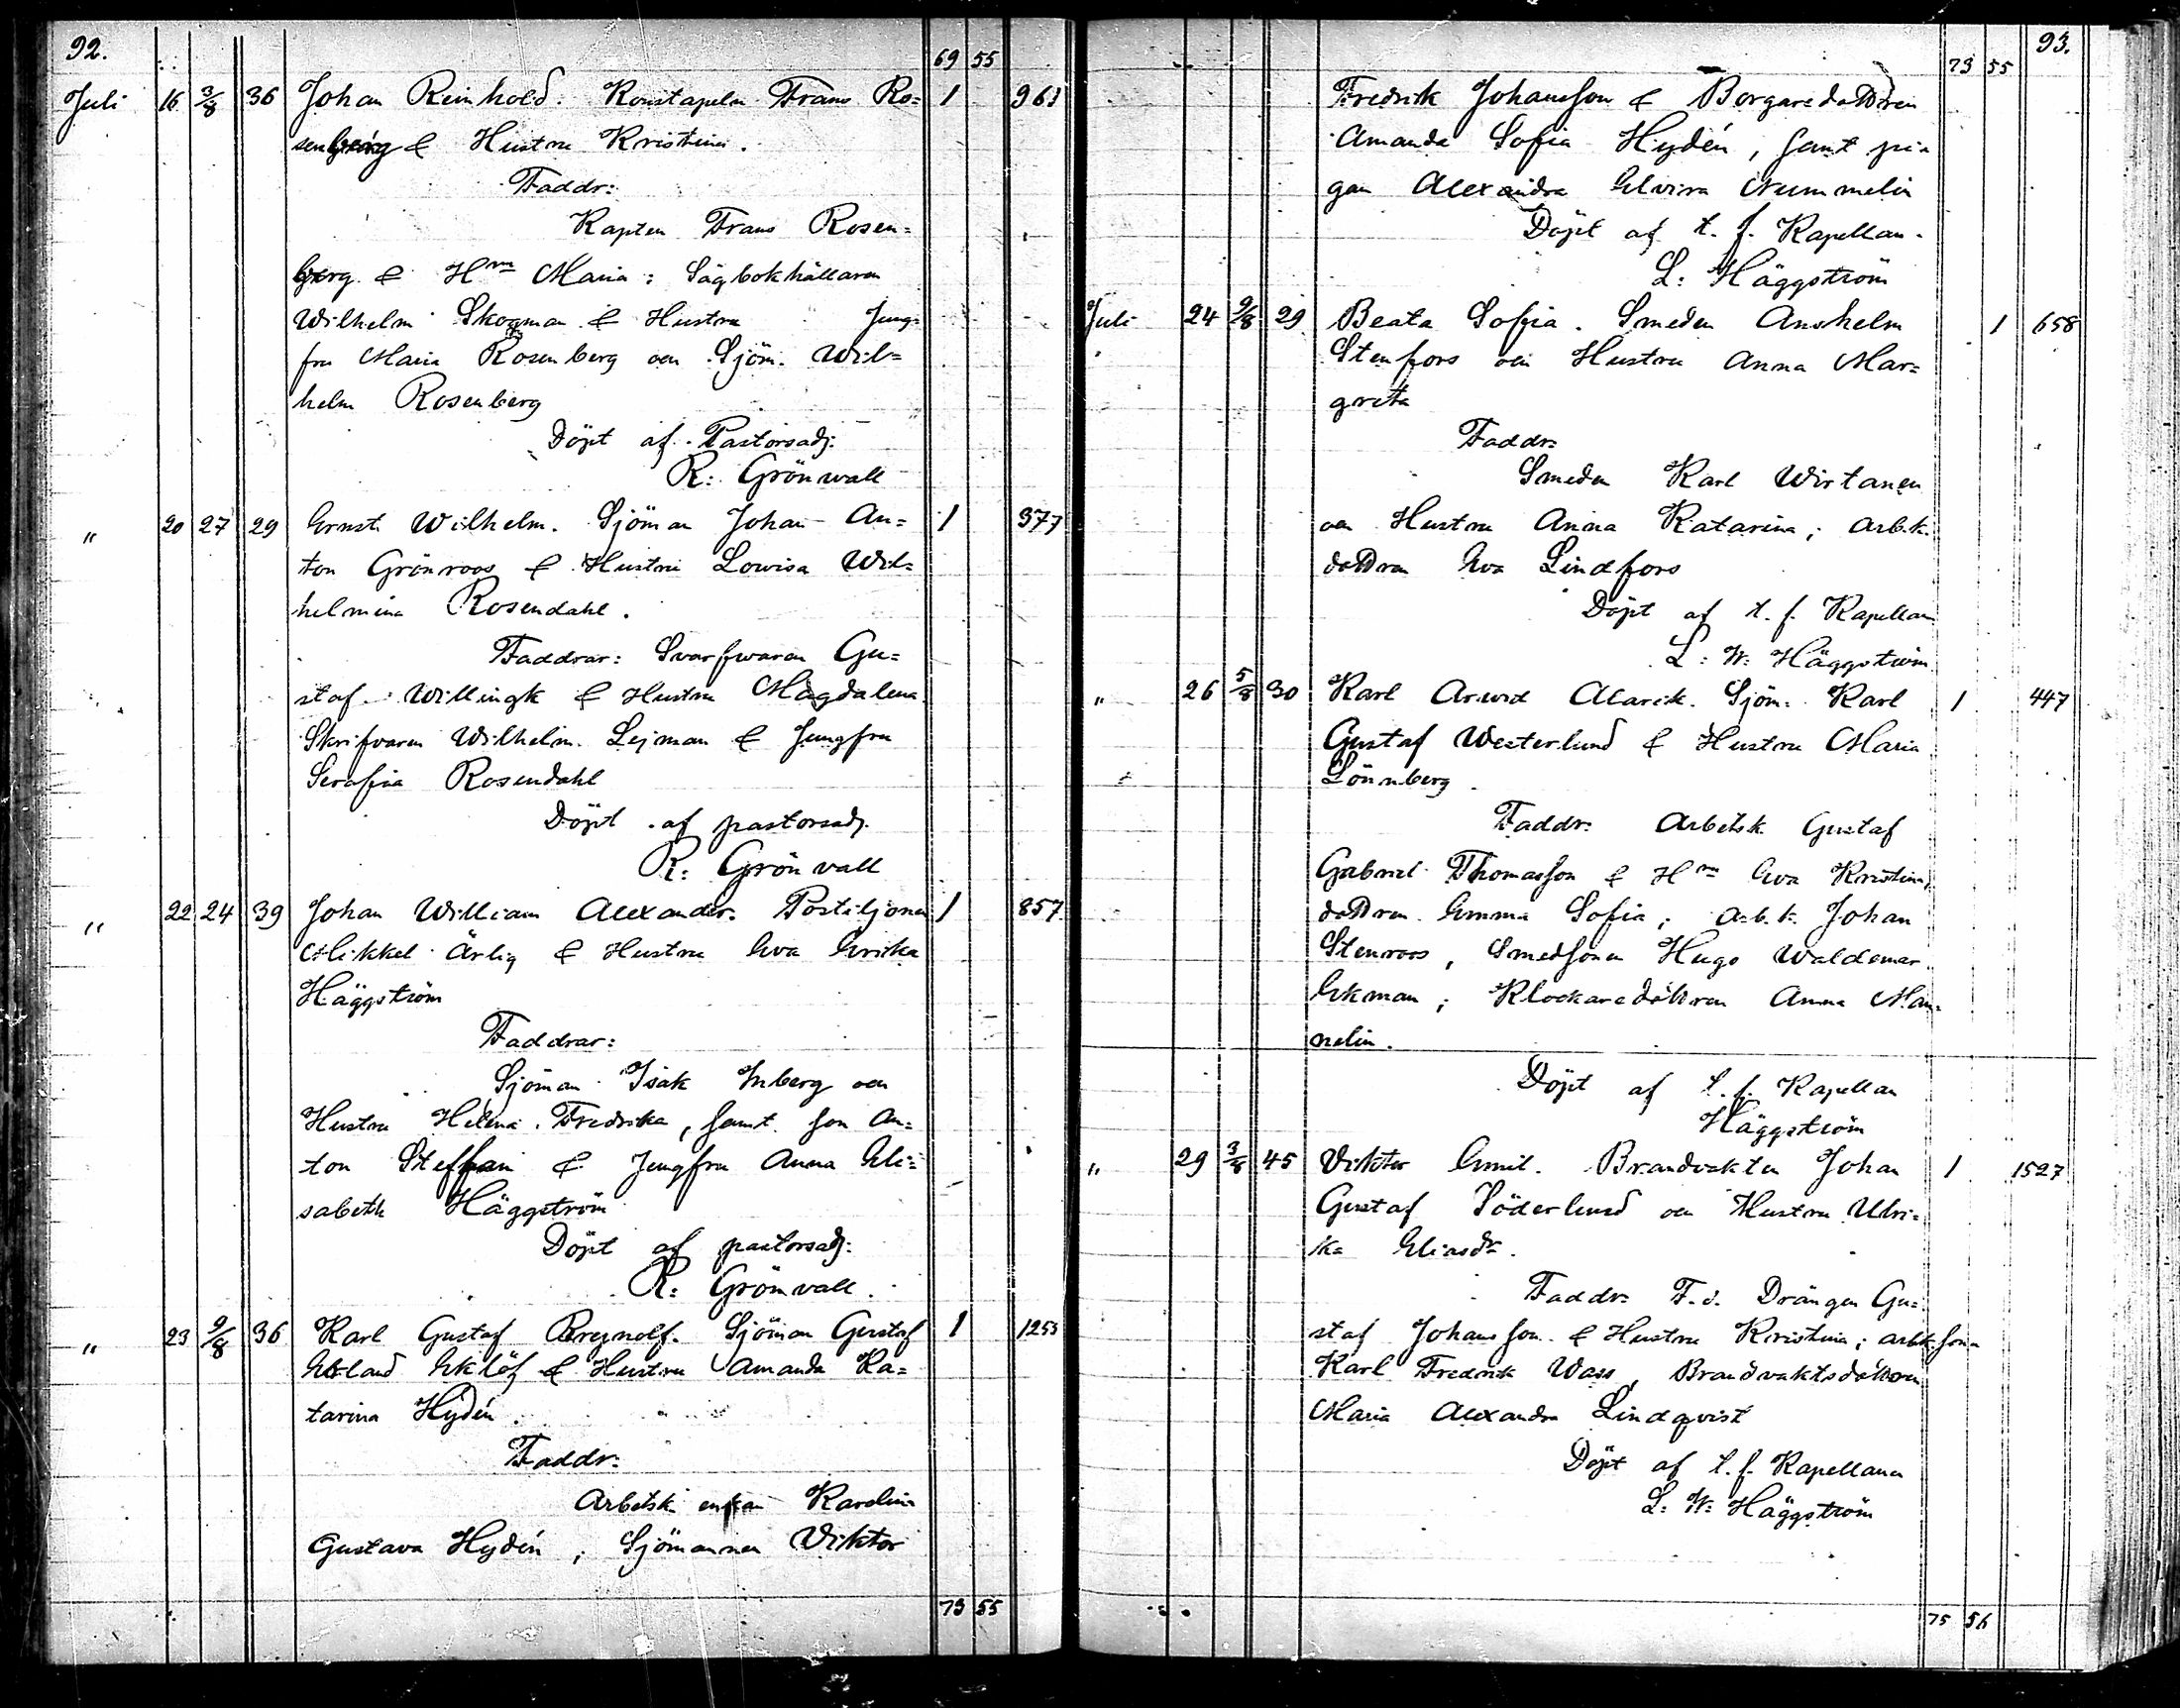 92.
69 55
Juli 16 3/8 36 Johan Reinhold. Konstapeln Frans Ro= 1 963
senberg & Hustru Kristina.
Faddr:
Kapten Frans Rosen=
berg & Hru Maria: Sågbokhållaren
Wilhelm Skogman & Hustru Jung-
fru Maria Rosenberg oen Sjöm. Wil=
helm Rosenberg
Döpt af Pastorsadj:
R: Grönwall
" 20 27 29 Ernst Wilhelm. Sjöman Johan An= 1 377
ton Grönroos & Hustru Lowisa Wil=
helmina Rosendahl.
Faddrar: Svarfwaren Gu=
staf Willingk & Hustru Magdalena
Skrifvaren Wilhelm Lejman & Jungfru
Serafia Rosendahl
Döpt af pastorsadj.
R: Grönvall
" 22 24 39 Johan William Alexander. Postiljonen 1 857
Mikkel Ärlig & Hustru Eva Erika
Häggström
Faddrar:
Sjöman Isak Inberg oen
Hustru Helena Fredrika, samt son An=
ton Steffan & Jungfru Anna Eli=
sabeth Häggström
Döpt af pastorsadj:
R: Grönvall.
" 23 9/8 36 Karl Gustaf Reynolf. Sjöman Gustaf 1 1253
Ekland Eklöf & Hustru Amanda Ka=
tarina Hydén.
Faddr:
Arbetsk. enkan Karolina
Gustava Hydén; Sjömannen Viktor
73 55
93.
73 55
Fredrik Johansson & Borgaredottren
Amanda Sofia Hydén, samt pi-
gan Alexandra Elvira Nummelin
Döpt af t. f. Kapellan.
L: Häggström
Juli 24 9/8 29 Beata Sofia. Smeden Anshelm 1 658
Stenfors oen Hustru Anna Mar=
greta
Faddr:
Smeden Karl Wirtanen
oen Hustru Anna Katarina; arb.k.
dottren Eva Lindfors
Döpt af t. f. Kapellan
L: W: Häggström
" 26 5/8 30 Karl Arwid Alarik. Sjöm. Karl 1 447
Gustaf Westerlund & Hustru Maria
Lönnberg.
Faddr: Arbetsk Gustaf
Gabriel Thomasson & Hru Eva Kristina,
dottren Emma Sofia; arb.k. Johan
Stenroos, Smedsonen Hugo Waldemar
Ekman; Klockaredottren Anna Man=
nelin.
Döpt af t. f. Kapellan
Häggström
" 29 3/8 45 Viktor Emil. Brandvakten Johan 1 1527
Gustaf Söderlund oen Hustru Ulri=
ka Eliasdr.
Faddr: F. d. Drängen Gu=
staf Johansson & Hustru Kristina; arbk. son
Karl Fredrik Wass, Brandvaktsdottren
Maria Alexandra Lindqvist
Döpt af t. f. Kapellanen
L: W: Häggström
75 56